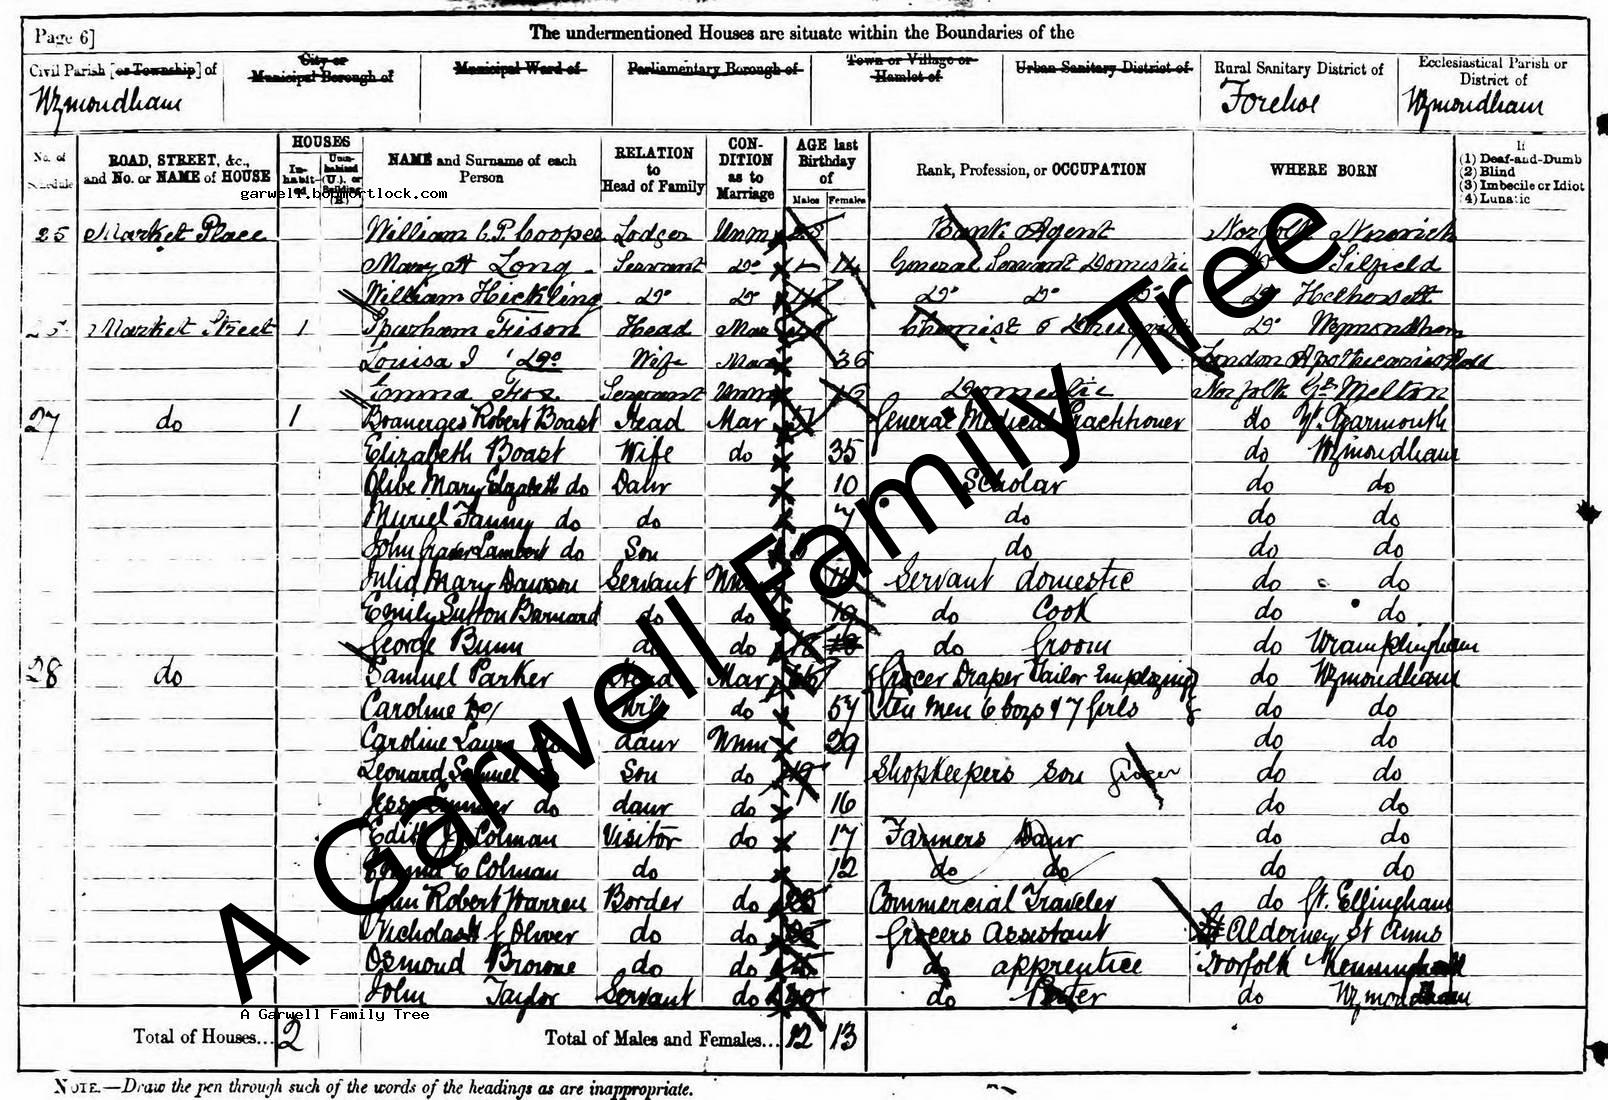 Page 6]
The undermentioned Houses are situate within the Boundaries of the
Civil Parish [or Township] of
City or Municipal Borough of
Municipal Ward of
Parliamentary Borough of
Town or Village or Hamlet of
Urban Sanitary District of
Rural Sanitary District of
Ecclesiastical Parish or District of
Wymondham
Forehoe
Wymondham
No. of Schedule
ROAD, STREET, &c., and No. or NAME of HOUSE
HOUSES
Inhabited
Uninhabited (U.), or Building (B.)
NAME and Surname of each Person
RELATION to Head of Family
CONDITION as to Marriage
AGE last Birthday of
Males
Females
Rank, Profession, or OCCUPATION
WHERE BORN
If
(1) Deaf-and-Dumb
(2) Blind
(3) Imbecile or Idiot
(4) Lunatic
garwell.bopmortlock.com
25 Market Place William C.P. Cooper Lodger Unm Bank Agent Norfolk Norwich
Mary A Long Servant Do 14 General Servant Domestic Silfield
William Hickling Do Do Do Do Do Do Hethersett
Market Street 1 Spurham Fison Head Mar Chemist & Druggist Do Wymondham
Louisa J Do Wife Mar 36 London Apothecaries Hall
Emma Fox Servant Unm 16 Domestic Norfolk Gt Melton
27 do 1 Boanerges Robert Boast Head Mar 51 General Medical Practitioner do Yt. Yarmouth
Elizabeth Boast Wife do 35 do Wymondham
Olive Mary Elizabeth do Daur 10 Scholar do do
Muriel Fanny do do 7 do do do
John Lambert do Son do do do
Julia Mary Dawson Servant Unm Servant domestic do do
Emily Sutton Barnard do do 19 do Cook do do
George Bunn do do 18 do Groom do Wramplingham
28 do Samuel Parker Head Mar 66 Grocer Draper Tailor Employing do Wymondham
Caroline Do Wife do 57 ten Men 6 boys & 7 Girls do do
Caroline Laura do daur Unm 29 do do
Leonard Samuel do Son do 19 Shopkeepers Son Grocer do do
do daur do 16 do do
Edith J Colman Visitor do 17 Farmers Daur do do
Emma E Colman do do 12 do do do do
John Robert Warren Border do 23 Commercial Traveler do Gt. Ellingham
Nicholas G Oliver do do 25 Grocers Assistant Alderney St Anns
Osmond Browne do do do apprentice Norfolk Kenninghall
John Taylor Servant do do Porter do Wymondham
A Garwell Family Tree
A Garwell Family Tree
Total of Houses... 2
Total of Males and Females... 12 13
NOTE.—Draw the pen through such of the words of the headings as are inappropriate.